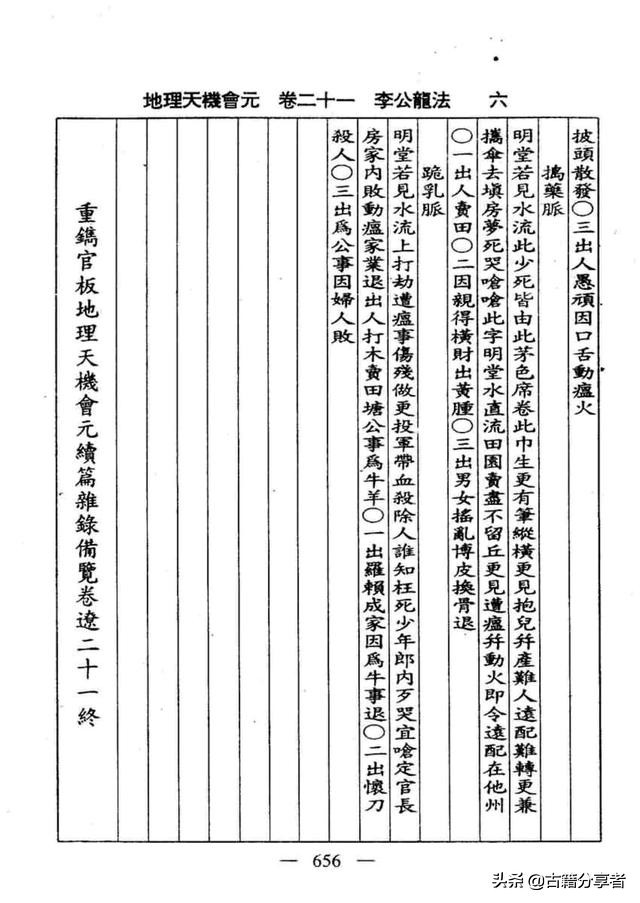 地理天機會元　卷二十一　李公龍法　六
披頭散發〇三出人愚頑因口舌動瘟火
搗藥脈
明堂若見水流此少死皆由此茅色席卷此巾生更有筆縱橫更見抱兒幷產難人遠配難轉更兼
攜傘去塡房夢死哭嗆嗆此字明堂水直流田園賣盡不留丘更見遭瘟幷動火即令遠配在他州
〇一出人賣田〇二因親得橫財出黃腫〇三出男女搖亂博皮換骨退
跪乳脈
明堂若見水流上打劫遭瘟事傷殘做更投軍帶血殺除人誰知枉死少年郎內歹哭宜嗆定官長
房家內敗動瘟家業退出人打木賣田塘公事爲牛羊〇一出羅賴成家因爲牛事退〇二出懷刀
殺人〇三出爲公事因婦人敗
重鐫官板地理天機會元續篇雜錄備覽卷遼二十一終
— 656 —
头条 @古籍分享者